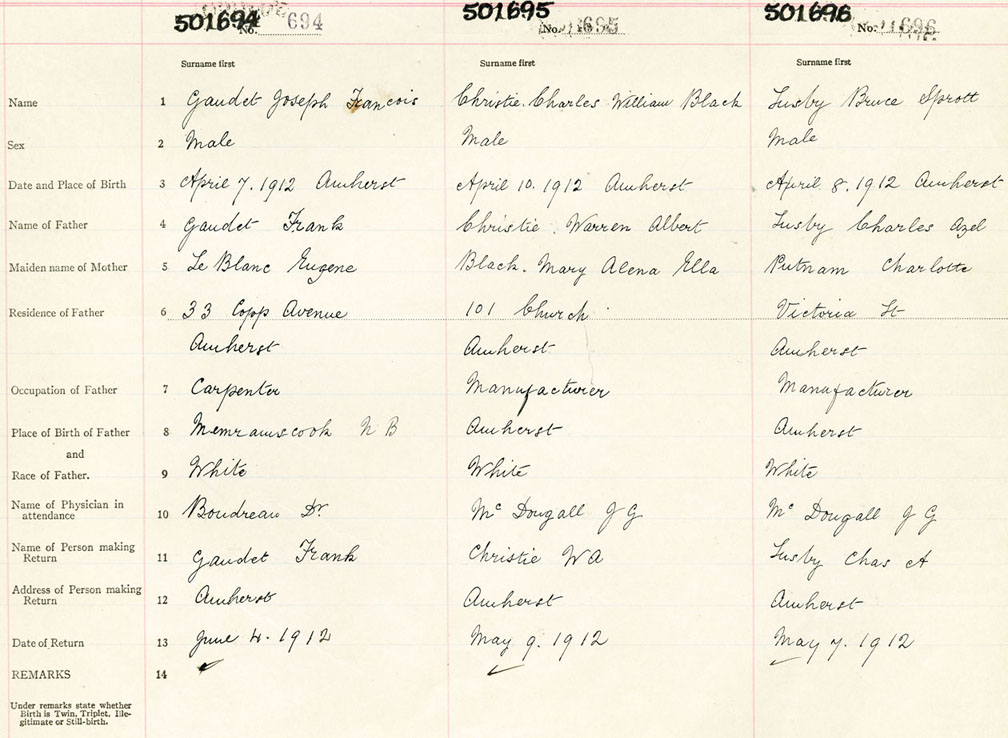 501694 No. 694 501695 No. 695 501696 No. 696
Surname first Surname first Surname first
Name 1 Gaudet Joseph Francois Christie. Charles William Black Lusby Bruce Sprott
Sex 2 Male Male Male
Date and Place of Birth 3 April 7. 1912 Amherst April 10. 1912 Amherst April 8. 1912 Amherst
Name of Father 4 Gaudet Frank Christie. Warren Albert Lusby Charles Azel
Maiden name of Mother 5 Le Blanc Eugene Black. Mary Alena Ella Putnam Charlotte
Residence of Father 6 33 Copp Avenue 101 Church Victoria St
Amherst Amherst Amherst
Occupation of Father 7 Carpenter Manufacturer Manufacturer
Place of Birth of Father 8 Memramscook N B Amherst Amherst
and
Race of Father. 9 White White White
Name of Physician in
attendance 10 Boudreau Dr. Mc Dougall J G Mc Dougall J G
Name of Person making
Return 11 Gaudet Frank Christie W A Lusby Chas A
Address of Person making
Return 12 Amherst Amherst Amherst
Date of Return 13 June 4. 1912 May 9. 1912 May 7. 1912
REMARKS 14
Under remarks state whether
Birth is Twin, Triplet, Ille-
gitimate or Still-birth.